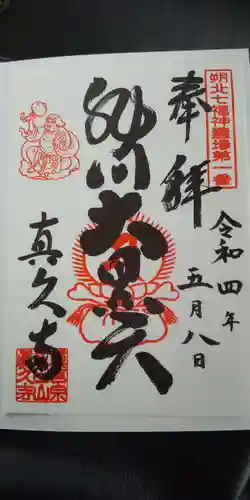 朔北七福神霊場第一番
奉拝
令和四年
五月八日
旭川大黒天
真久寺